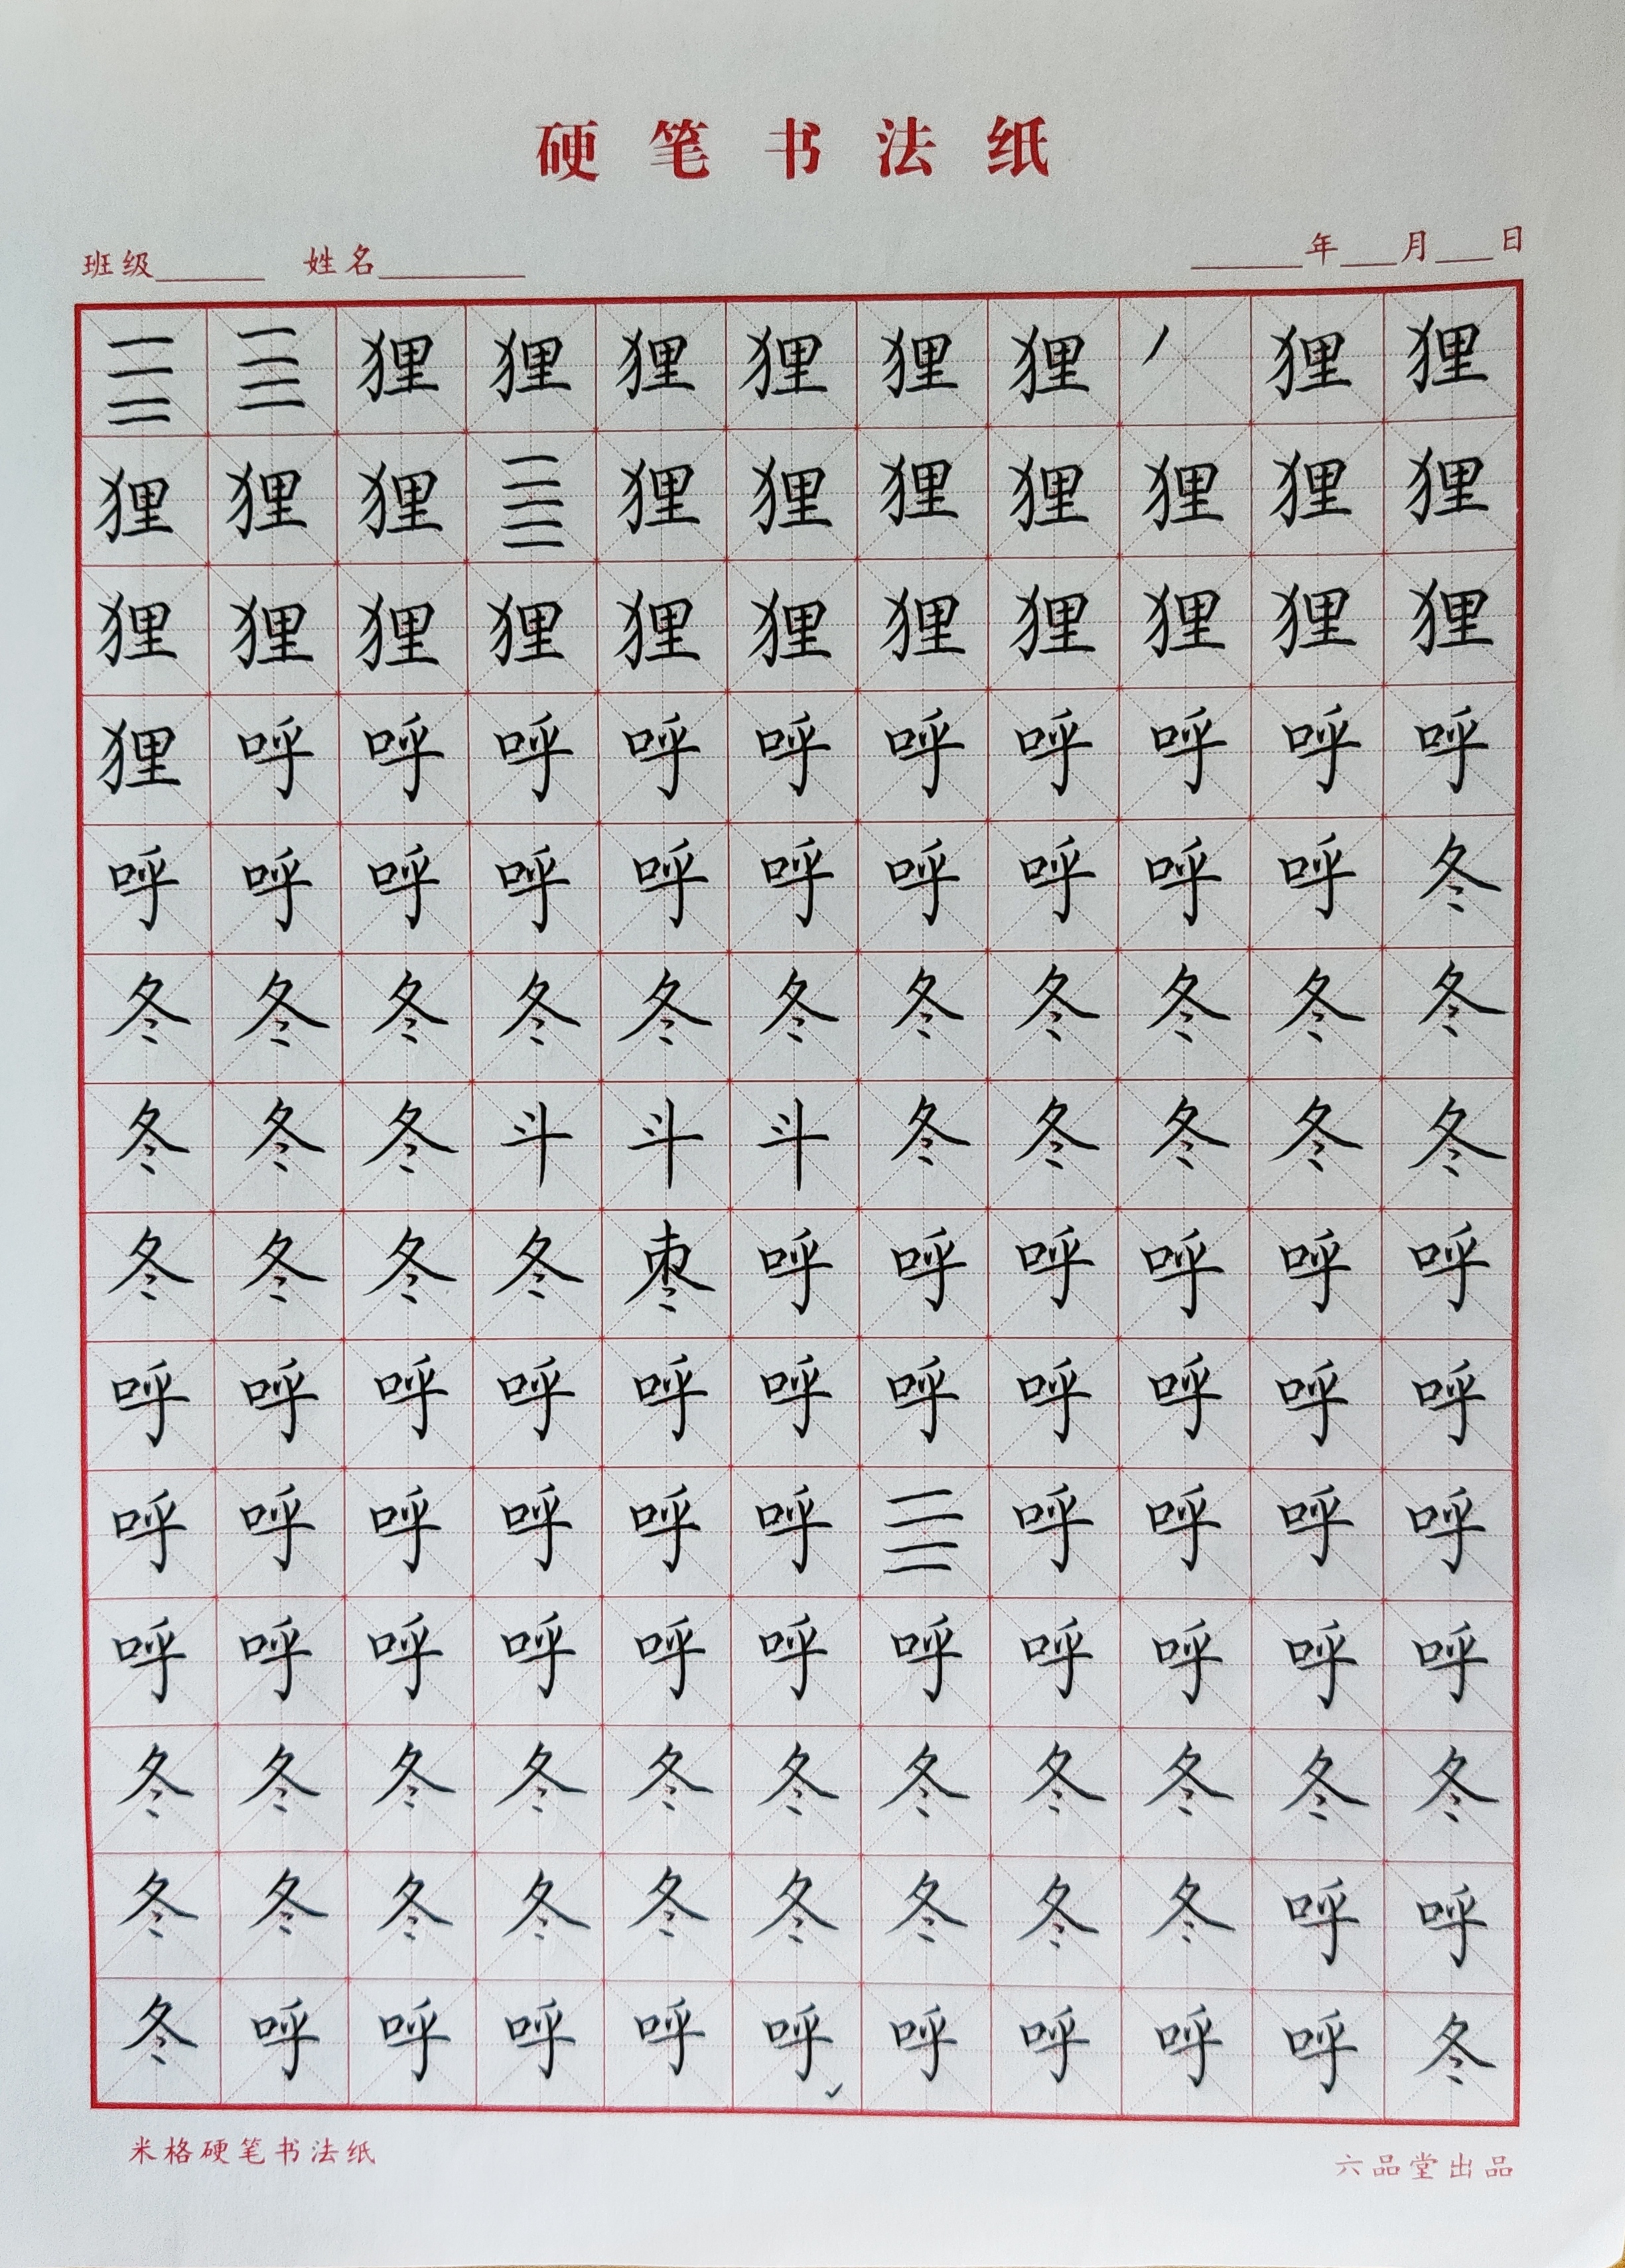 硬笔书法纸
班级______ 姓名________ ______年___月___日
狸狸狸狸狸狸狸狸
狸狸狸狸狸狸狸狸狸狸
狸狸狸狸狸狸狸狸狸狸狸
狸呼呼呼呼呼呼呼呼呼呼
呼呼呼呼呼呼呼呼呼呼冬
冬冬冬冬冬冬冬冬冬冬冬
冬冬冬斗斗斗冬冬冬冬冬
冬冬冬冬枣呼呼呼呼呼呼
呼呼呼呼呼呼呼呼呼呼呼
呼呼呼呼呼呼呼呼呼呼
呼呼呼呼呼呼呼呼呼呼呼
冬冬冬冬冬冬冬冬冬冬冬
冬冬冬冬冬冬冬冬冬呼呼
冬呼呼呼呼呼呼呼呼呼冬
米格硬笔书法纸 六品堂出品